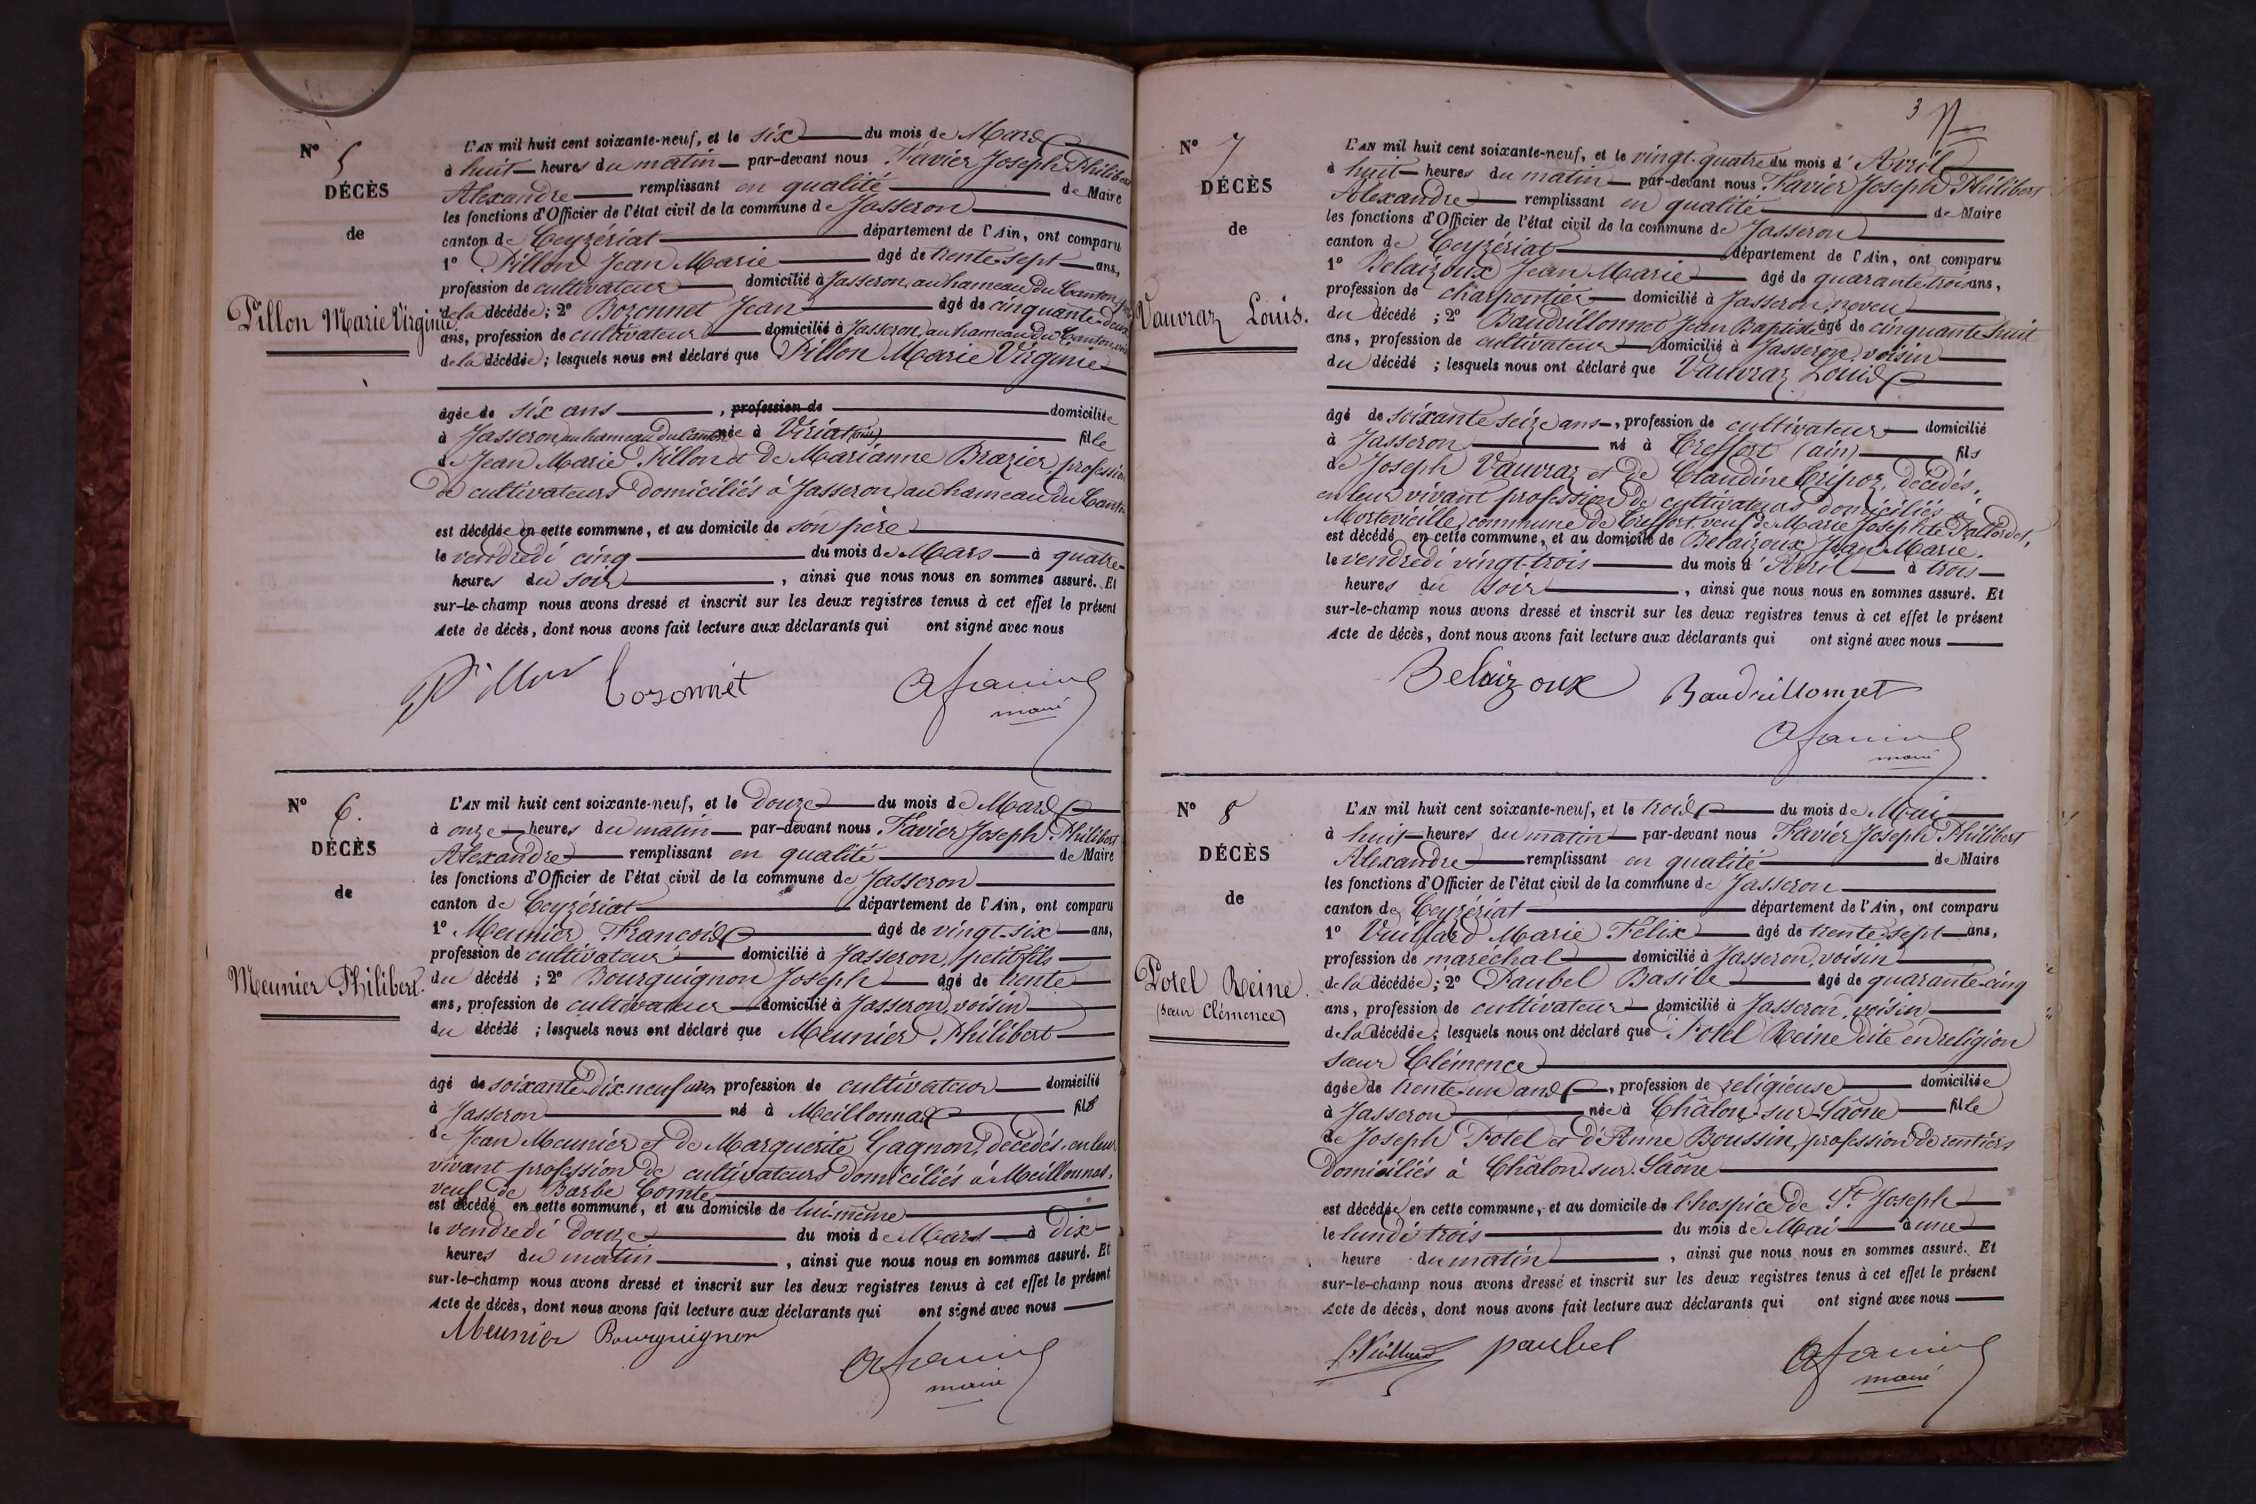 N° 5
DÉCÈS
de
Pillon Marie Virginie.
L'AN mil huit cent soixante-neuf, et le six du mois de Mars
à huit heures du matin par-devant nous Favier Joseph Philibert
Alexandre remplissant en qualité de Maire
les fonctions d'Officier de l'état civil de la commune de Jasseron
canton de Ceyzériat département de l'Ain, ont comparu
1° Pillon Jean Marie âgé de trente-sept ans,
profession de cultivateur domicilié à Jasseron, au hameau du
de la décédée; 2° Bozonnet Jean âgé de cinquante-deux
ans, profession de cultivateur domicilié à Jasseron, au hameau du
de la décédée; lesquels nous ont déclaré que Pillon Marie Virginie
âgée de six ans, profession de domiciliée
à Jasseron, au hameau du née à Viriat (ain) fille
de Jean Marie Pillon et de Marianne Brazier, profession
de cultivateurs domiciliés à Jasseron, au hameau du
est décédée en cette commune, et au domicile de son père
le vendredi cinq du mois de Mars à quatre
heures du soir, ainsi que nous nous en sommes assuré. Et
sur-le-champ nous avons dressé et inscrit sur les deux registres tenus à cet effet le présent
Acte de décès, dont nous avons fait lecture aux déclarants qui ont signé avec nous
Pillon Bozonnet Afavier
maire
N° 6.
DÉCÈS
de
Meunier Philibert.
L'AN mil huit cent soixante-neuf, et le douze du mois de Mars
à onze heures du matin par-devant nous Favier Joseph Philibert
Alexandre remplissant en qualité de Maire
les fonctions d'Officier de l'état civil de la commune de Jasseron
canton de Ceyzériat département de l'Ain, ont comparu
1° Meunier François âgé de vingt-six ans,
profession de cultivateur domicilié à Jasseron, petit fils
du décédé; 2° Bourguignon Joseph âgé de trente
ans, profession de cultivateur domicilié à Jasseron, voisin
du décédé; lesquels nous ont déclaré que Meunier Philibert
âgé de soixante-dix-neuf ans profession de cultivateur domicilié
à Jasseron né à Meillonnas fils
de Jean Meunier et de Marguerite Gagnon, décédés, en leur
vivant profession de cultivateurs domiciliés à Meillonnas,
veuf de Barbe Comte
est décédé en cette commune, et au domicile de lui-même
le vendredi douze du mois de Mars à dix
heures du matin, ainsi que nous nous en sommes assuré. Et
sur-le-champ nous avons dressé et inscrit sur les deux registres tenus à cet effet le présent
Acte de décès, dont nous avons fait lecture aux déclarants qui ont signé avec nous
Meunier Bourguignon
Afavier
maire
3
N° 7
DÉCÈS
de
Vauvraz Louis.
L'AN mil huit cent soixante-neuf, et le vingt-quatre du mois d'Avril
à huit heures du matin par-devant nous Favier Joseph Philibert
Alexandre remplissant en qualité de Maire
les fonctions d'Officier de l'état civil de la commune de Jasseron
canton de Ceyzériat département de l'Ain, ont comparu
1° Belaizoux Jean Marie âgé de quarante-trois ans,
profession de charpentier domicilié à Jasseron, neveu
du décédé; 2° Baudrillonnet Jean Baptiste âgé de cinquante-huit
ans, profession de cultivateur domicilié à Jasseron, voisin
du décédé; lesquels nous ont déclaré que Vauvraz Louis
âgé de soixante-seize ans, profession de cultivateur domicilié
à Jasseron né à Treffort (ain) fils
de Joseph Vauvraz et de Claudine Tripoz, décédés,
en leur vivant profession de cultivateurs domiciliés à
commune de Treffort, veuf de Marie Josephte
est décédé en cette commune, et au domicile de Belaizoux Jean Marie.
le vendredi vingt-trois du mois d'Avril à trois
heures du soir, ainsi que nous nous en sommes assuré. Et
sur-le-champ nous avons dressé et inscrit sur les deux registres tenus à cet effet le présent
Acte de décès, dont nous avons fait lecture aux déclarants qui ont signé avec nous
Belaizoux Baudrillonnet
Afavier
maire
N° 8
DÉCÈS
de
Potel Reine.
(sœur Clémence)
L'AN mil huit cent soixante-neuf, et le trois du mois de Mai
à huit heures du matin par-devant nous Favier Joseph Philibert
Alexandre remplissant en qualité de Maire
les fonctions d'Officier de l'état civil de la commune de Jasseron
canton de Ceyzériat département de l'Ain, ont comparu
1° Vuillard Marie Félix âgé de trente-sept ans,
profession de maréchal domicilié à Jasseron, voisin
de la décédée; 2° Paubel Basile âgé de quarante-cinq
ans, profession de cultivateur domicilié à Jasseron, voisin
de la décédée; lesquels nous ont déclaré que Potel Reine dite en religion
sœur Clémence
âgée de trente-un ans, profession de religieuse domiciliée
à Jasseron née à Châlon-sur-Sâone fille
de Joseph Potel et d'Anne Boussin, profession de rentiers
domiciliés à Châlon-sur-Sâone
est décédée en cette commune, et au domicile de l'hospice de St Joseph
le lundi trois du mois de Mai à une
heure du matin, ainsi que nous nous en sommes assuré. Et
sur-le-champ nous avons dressé et inscrit sur les deux registres tenus à cet effet le présent
Acte de décès, dont nous avons fait lecture aux déclarants qui ont signé avec nous
Vuillard paubel Afavier
maire